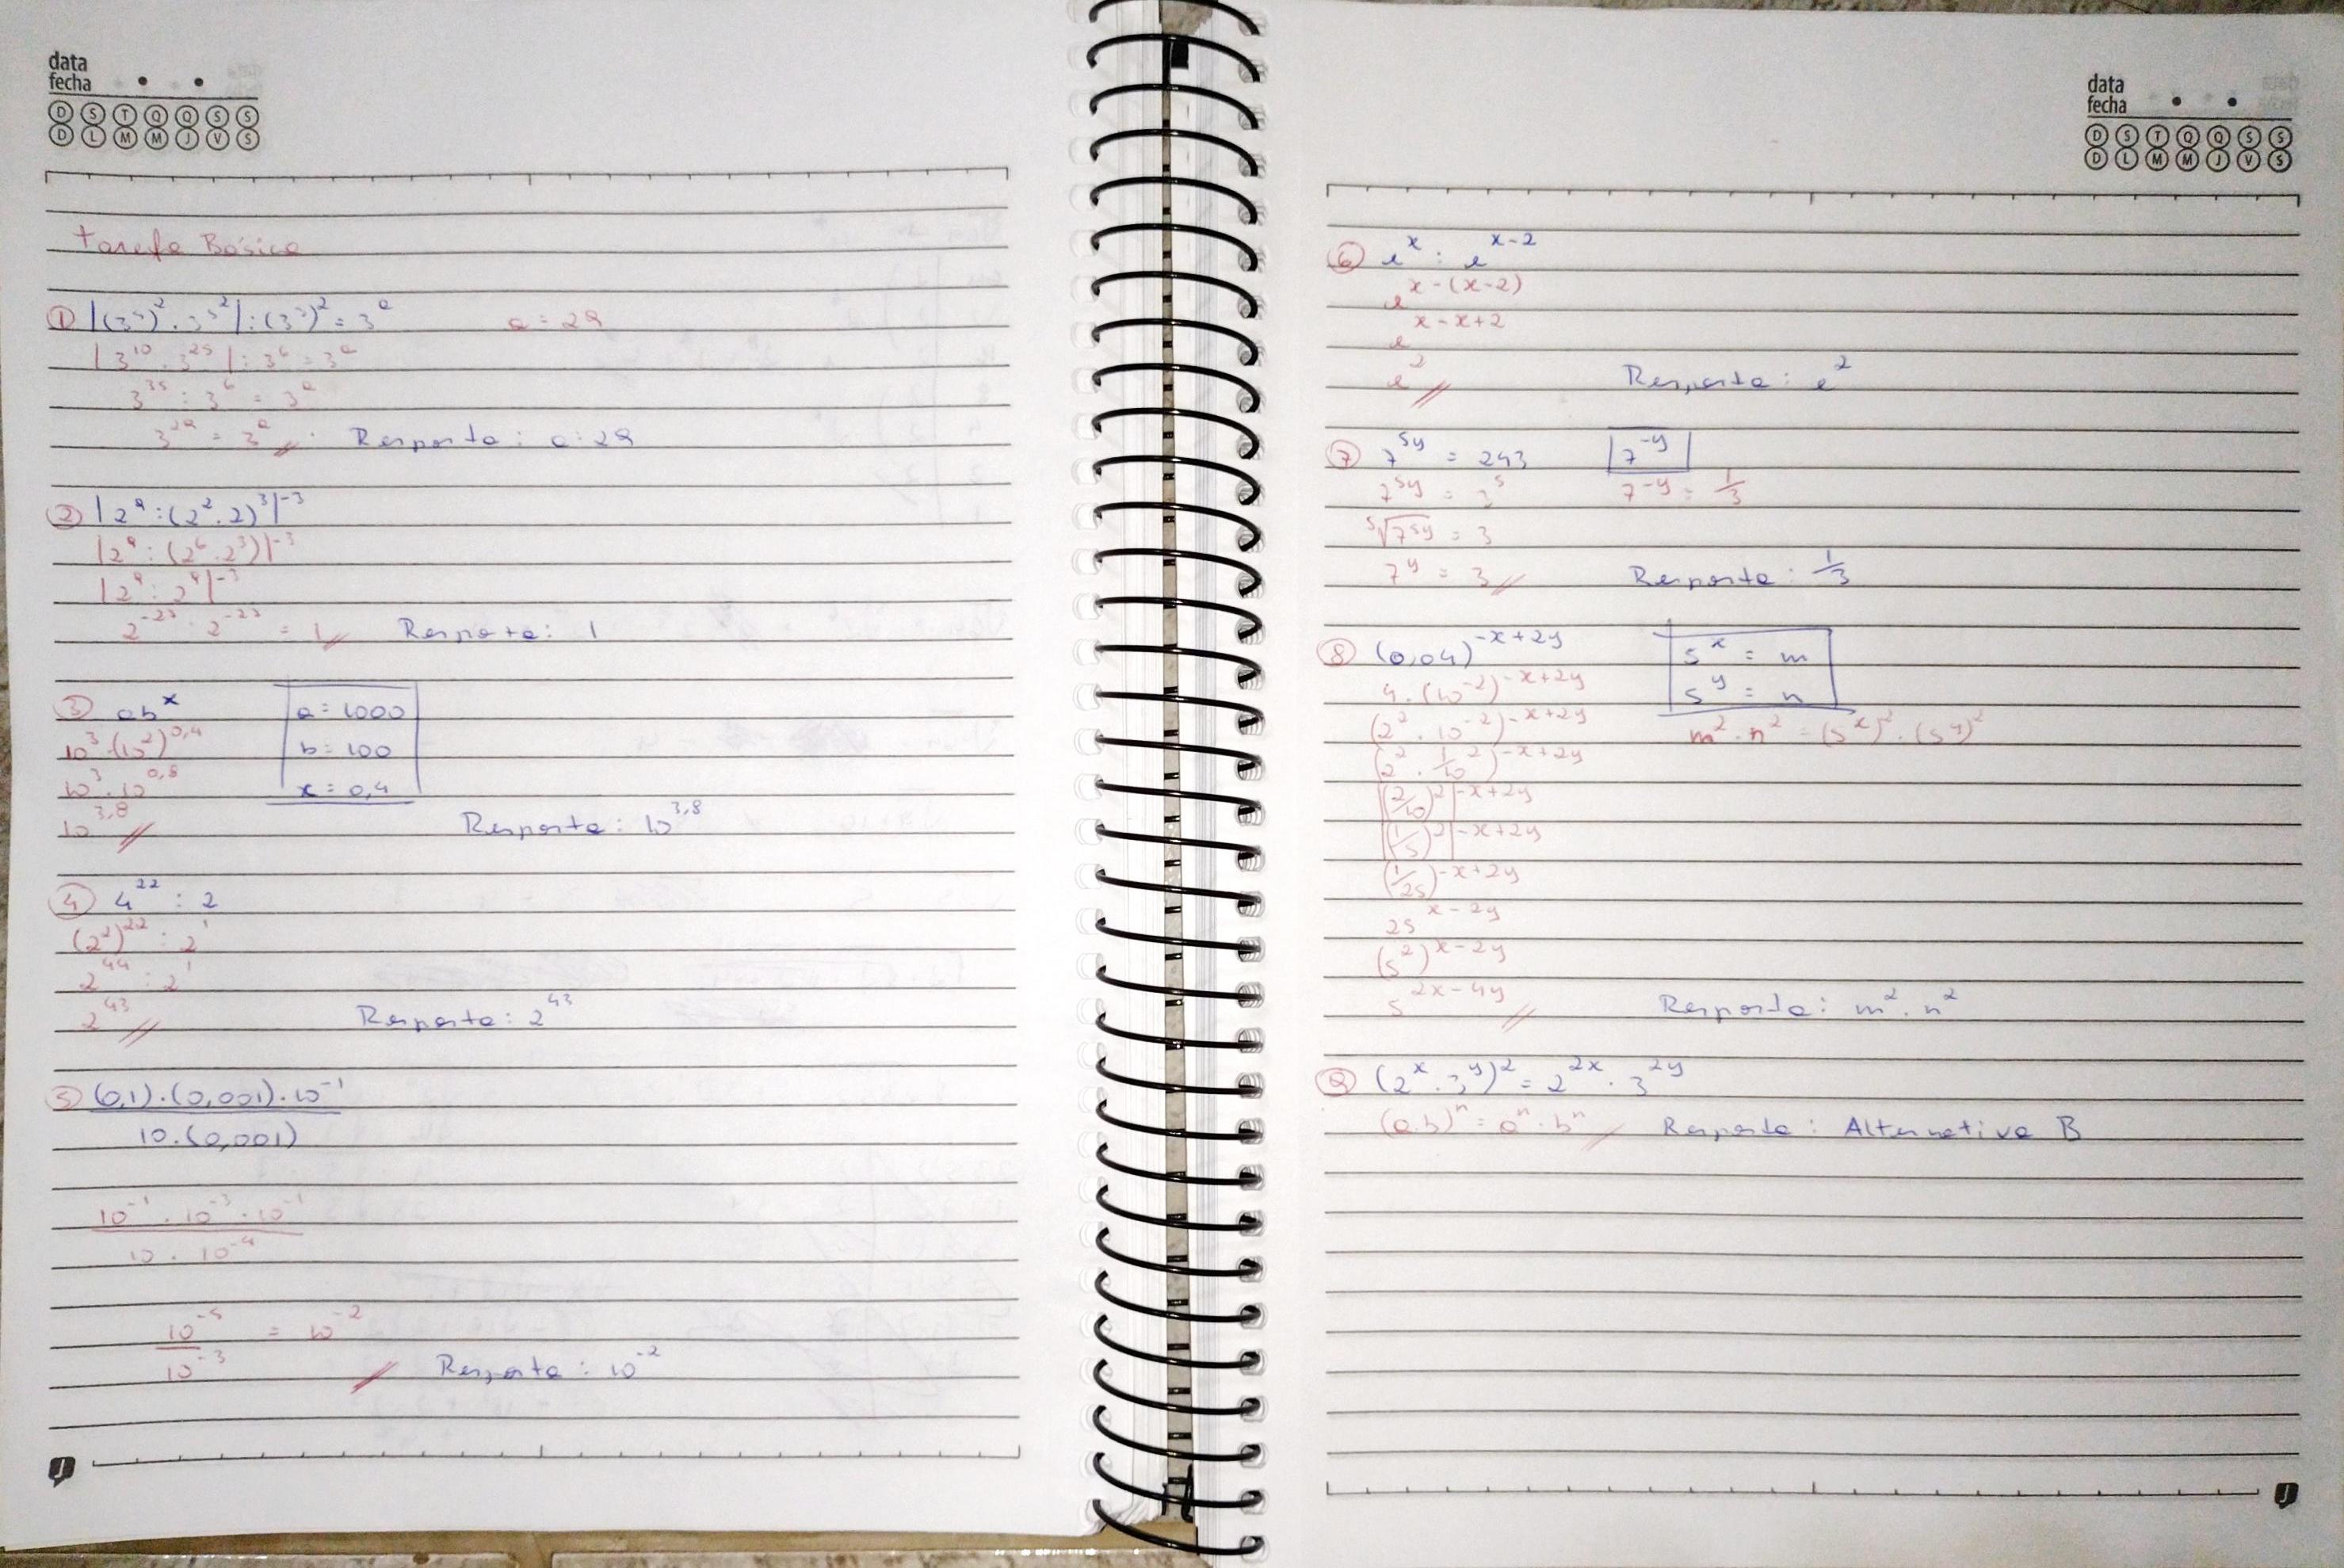 data
fecha
D S T Q Q S S
D L M M J V S
Tarefa Básica
① |(3⁵)² . 3⁵²| : (3³)² = 3ᵃ a = 29
|3¹⁰ . 3²⁵| : 3⁶ = 3ᵃ
3³⁵ : 3⁶ = 3ᵃ
3²⁹ = 3ᵃ // Resposta: a = 29
② |2⁹ : (2² . 2)³|⁻³
|2⁹ : (2⁶ . 2³)|⁻³
|2⁹ : 2⁹|⁻³
2⁻²⁷ : 2⁻²⁷ = 1 // Resposta: 1
③ abˣ a = 1000
10³ . (10²)^0,4 b = 100
10³ . 10^0,8 x = 0,4
10^3,8 // Resposta: 10^3,8
④ 4²² : 2
(2²)²² : 2¹
2⁴⁴ : 2¹
2⁴³ // Resposta: 2⁴³
⑤ (0,1) . (0,001) . 10⁻¹
10 . (0,001)
10⁻¹ . 10⁻³ . 10⁻¹
10 . 10⁻⁴
10⁻⁵ = 10⁻²
10⁻³ // Resposta: 10⁻²
data
fecha
D S T Q Q S S
D L M M J V S
⑥ eˣ : e^x-2
e^x-(x-2)
e^x-x+2
e² // Resposta: e²
⑦ 7^5y = 243 7^-y
7^5y = 3⁵ 7^-y = 1/3
⁵√7^5y = 3
7^y = 3 // Resposta: 1/3
⑧ (0,04)^-x+2y 5ˣ = m
4 . (10⁻²)^-x+2y 5^y = n
(2² . 10⁻²)^-x+2y m² . n² = (5ˣ)² . (5^y)²
(2² . 1/10²)^-x+2y
|(2/10)²|^-x+2y
|(1/5)²|^-x+2y
(1/25)^-x+2y
25^x-2y
(5²)^x-2y
5^2x-4y // Resposta: m² . n²
⑨ (2ˣ . 3^y)² = 2^2x . 3^2y
(a.b)ⁿ = aⁿ . bⁿ // Resposta: Alternativa B